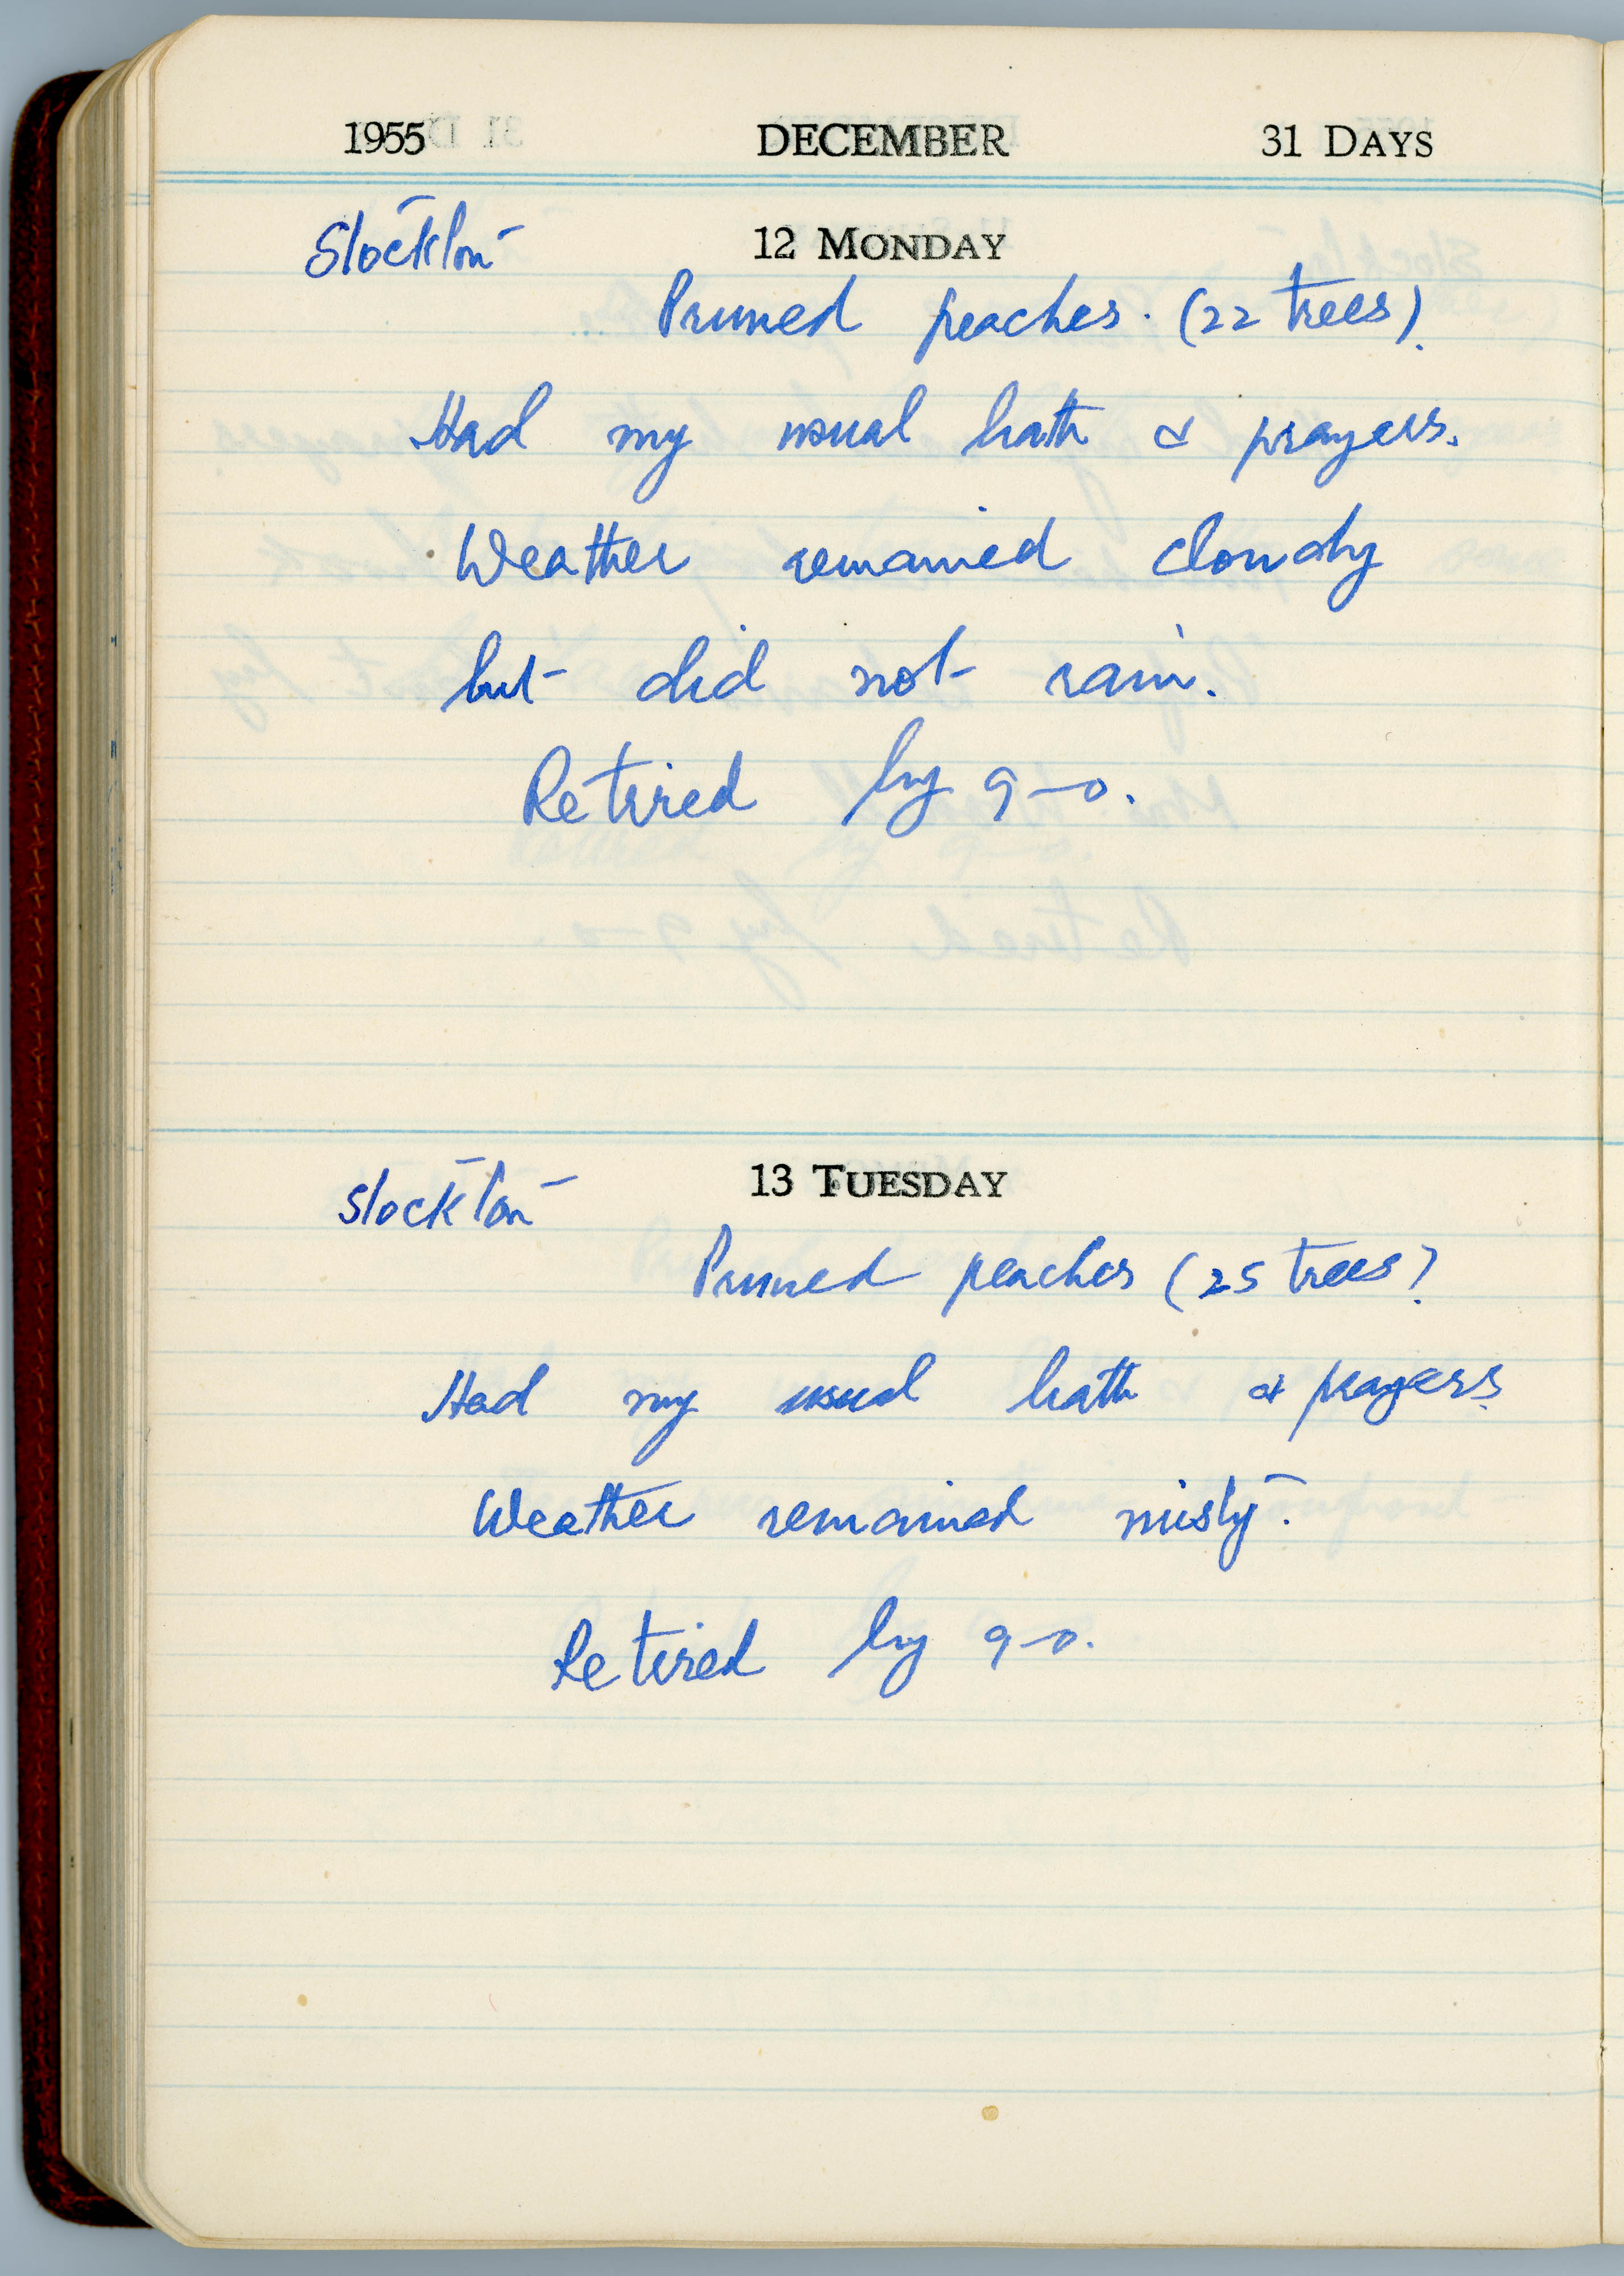 1955 DECEMBER 31 DAYS
Stockton 12 MONDAY
Pruned peaches. (22 trees).
Had my usual bath & prayers.
Weather remained cloudy
but did not rain.
Retired by 9-0.
Stockton 13 TUESDAY
Pruned peaches (25 trees)
Had my usual bath & prayers.
Weather remained misty.
Retired by 9-0.